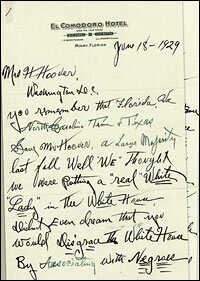 EL COMODORO HOTEL
MIAMI, FLORIDA
June 18 - 1929
Mrs H Hoover,
Washington D.C.
you remember that Florida, Va
North Carolina Tenn & Texas
Gave Mr Hoover, a Large Majority
last fall Well We Thought
we were Putting a "real" "White
Lady" in the White House.
Didn't Even dream that you
would Disgrace the White House
By associating with Negroes